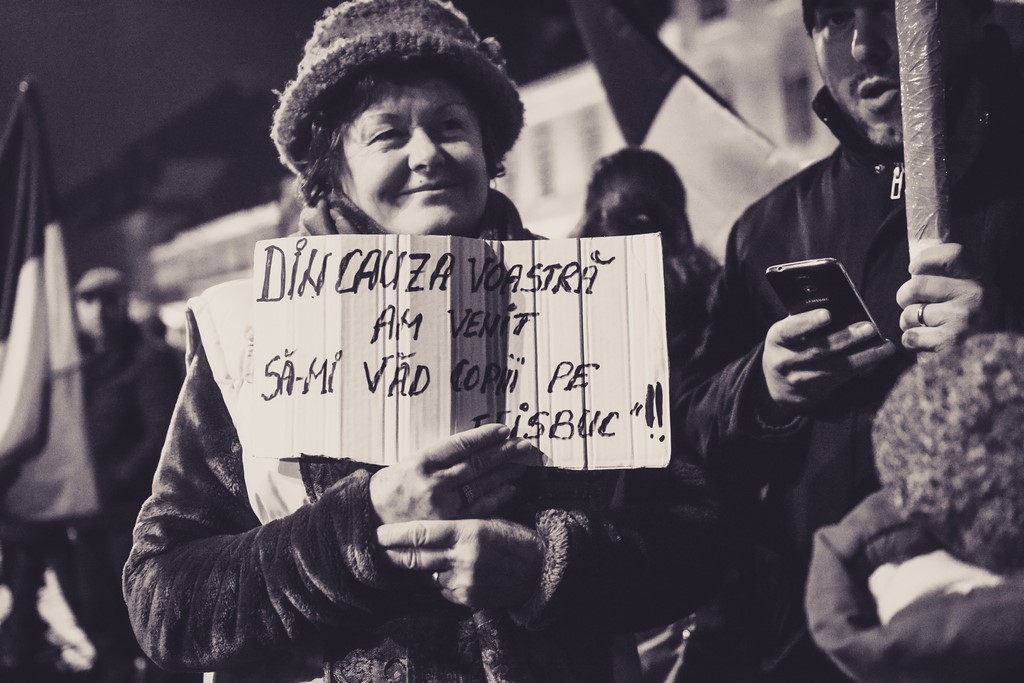 DIN CAUZA VOASTRĂ
AM VENIT
SĂ-MI VĂD COPIII PE
FEISBUC"!!
SAMSUNG